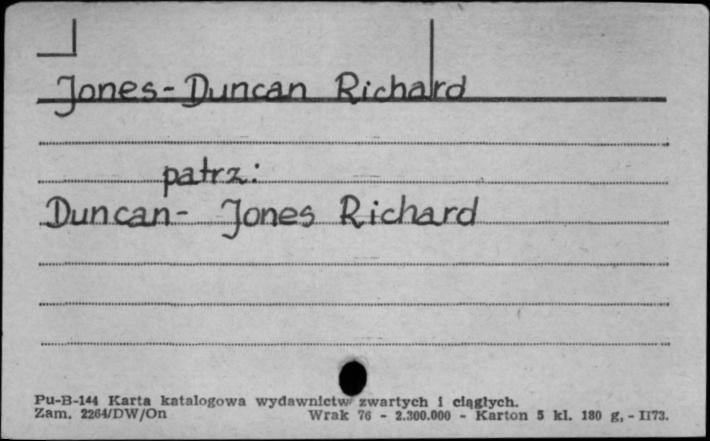 Jones-Duncan Richard
patrz:
Duncan- Jones Richard
Pu-B-144 Karta katalogowa wydawnictw zwartych i ciągłych.
Zam. 2264/DW/On Wrak 76 - 2.300.000 - Karton 5 kl. 180 g, - II73.